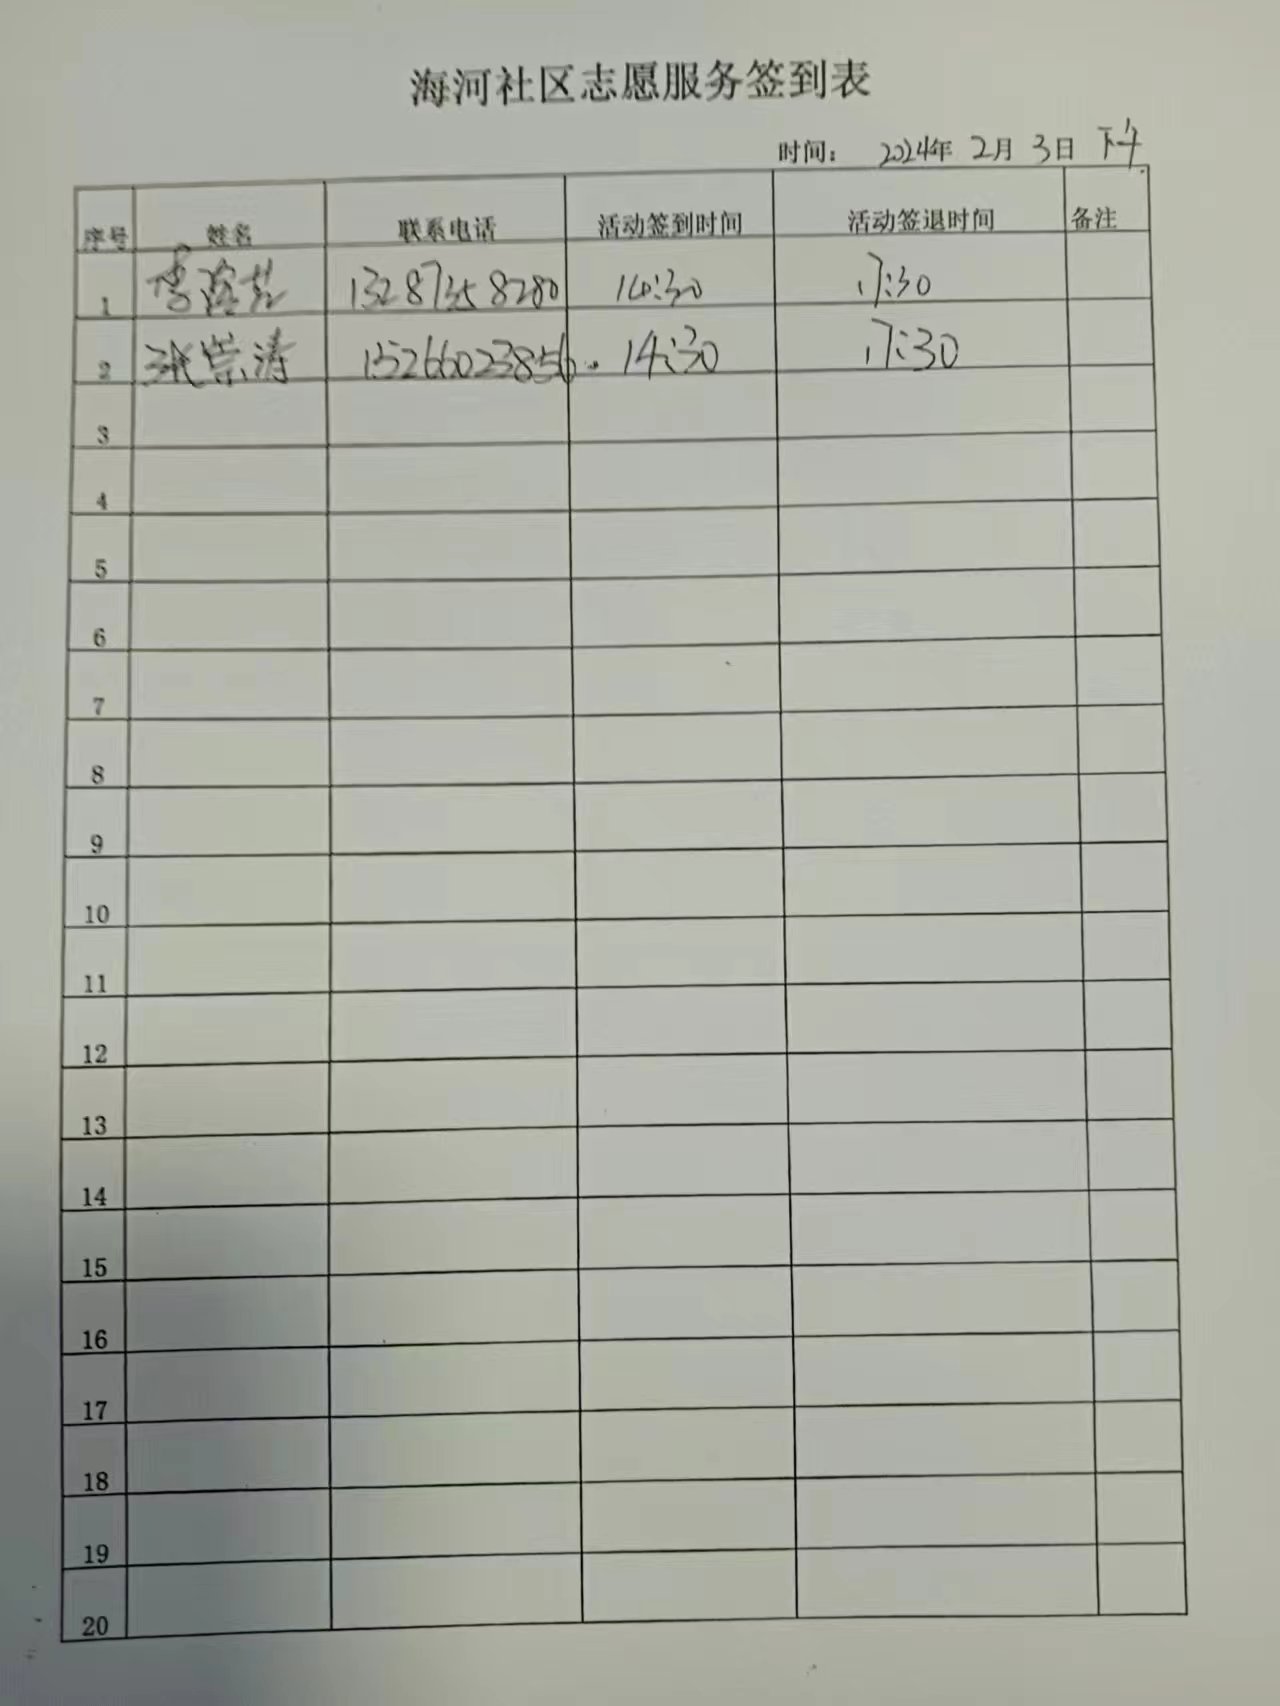 海河社区志愿服务签到表
时间： 2024年 2月 3日 下午
序号 姓名 联系电话 活动签到时间 活动签退时间 备注
1 李 13287358280 14:30 17:30
2 张崇涛 15266023856. 14:30 17:30
3
4
5
6
7
8
9
10
11
12
13
14
15
16
17
18
19
20